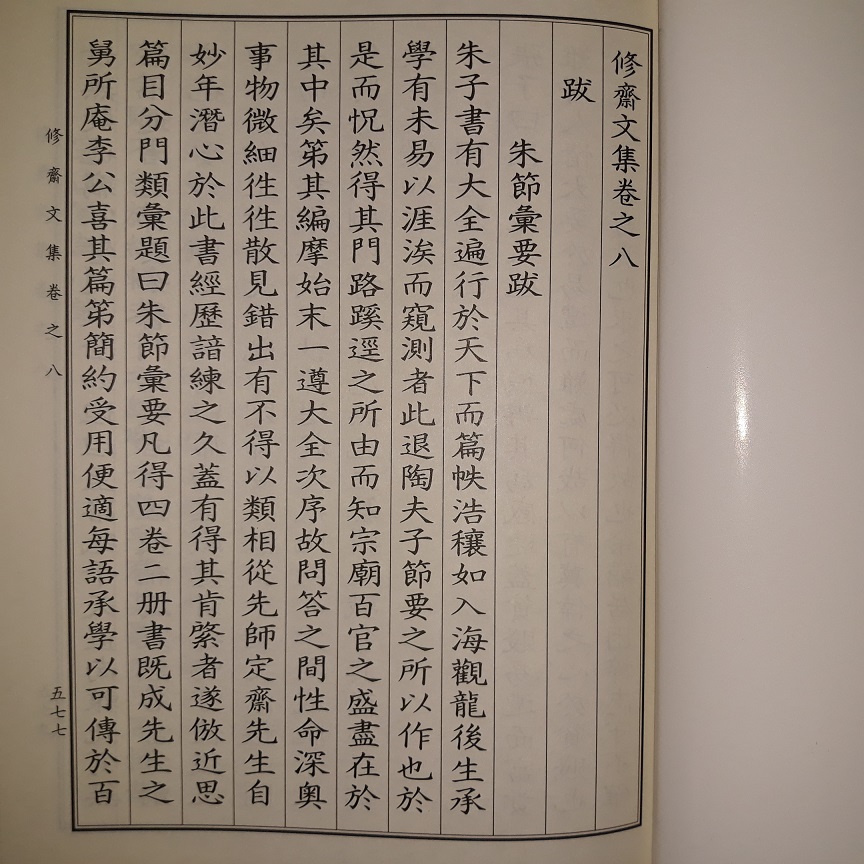 修齋文集卷之八
跋
朱節彙要跋
朱子書有大全遍行於天下而篇帙浩穰如入海觀龍後生承
學有未易以涯涘而窺測者此退陶夫子節要之所以作也於
是而怳然得其門路蹊逕之所由而知宗廟百官之盛盡在於
其中矣第其編摩始末一遵大全次序故問答之間性命深奧
事物微細徃徃散見錯出有不得以類相從先師定齋先生自
妙年潛心於此書經歷諳練之久蓋有得其肯綮者遂倣近思
篇目分門類彙題曰朱節彙要凡得四卷二册書旣成先生之
舅所庵李公喜其篇第簡約受用便適每語承學以可傳於百
修齋文集卷之八
五七七